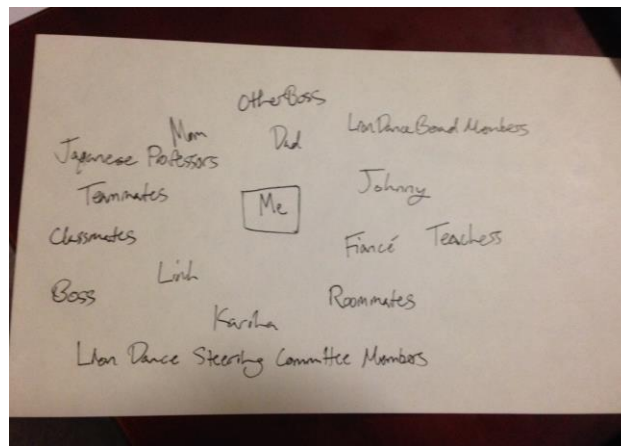 Other Boss
Mom Dad Lion Dance Board Members
Japanese Professors
Teammates Me Johnny
Classmates Fiancé Teachers
Boss Linh Roommates
Karina
Lion Dance Steering Committee Members